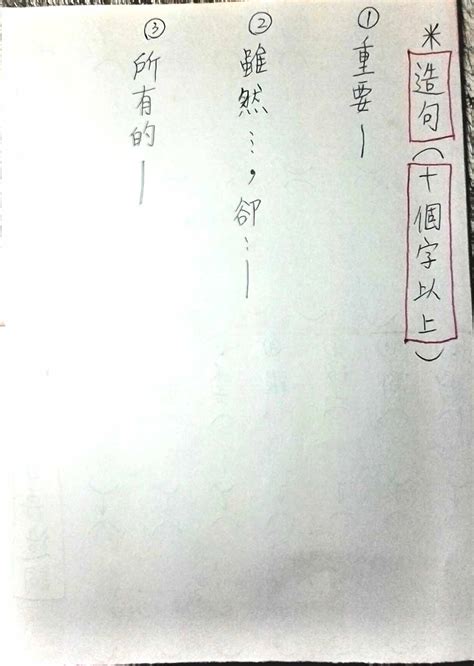 ※造句(十個字以上)
①重要—
②雖然…,卻…—
③所有的—